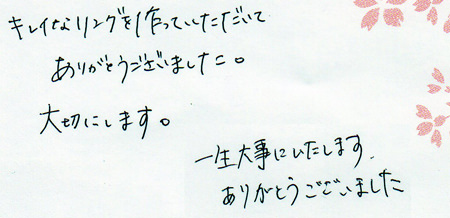 キレイなリングを作っていただいて
ありがとうございました。
大切にします。
一生大事にいたします.
ありがとうございました